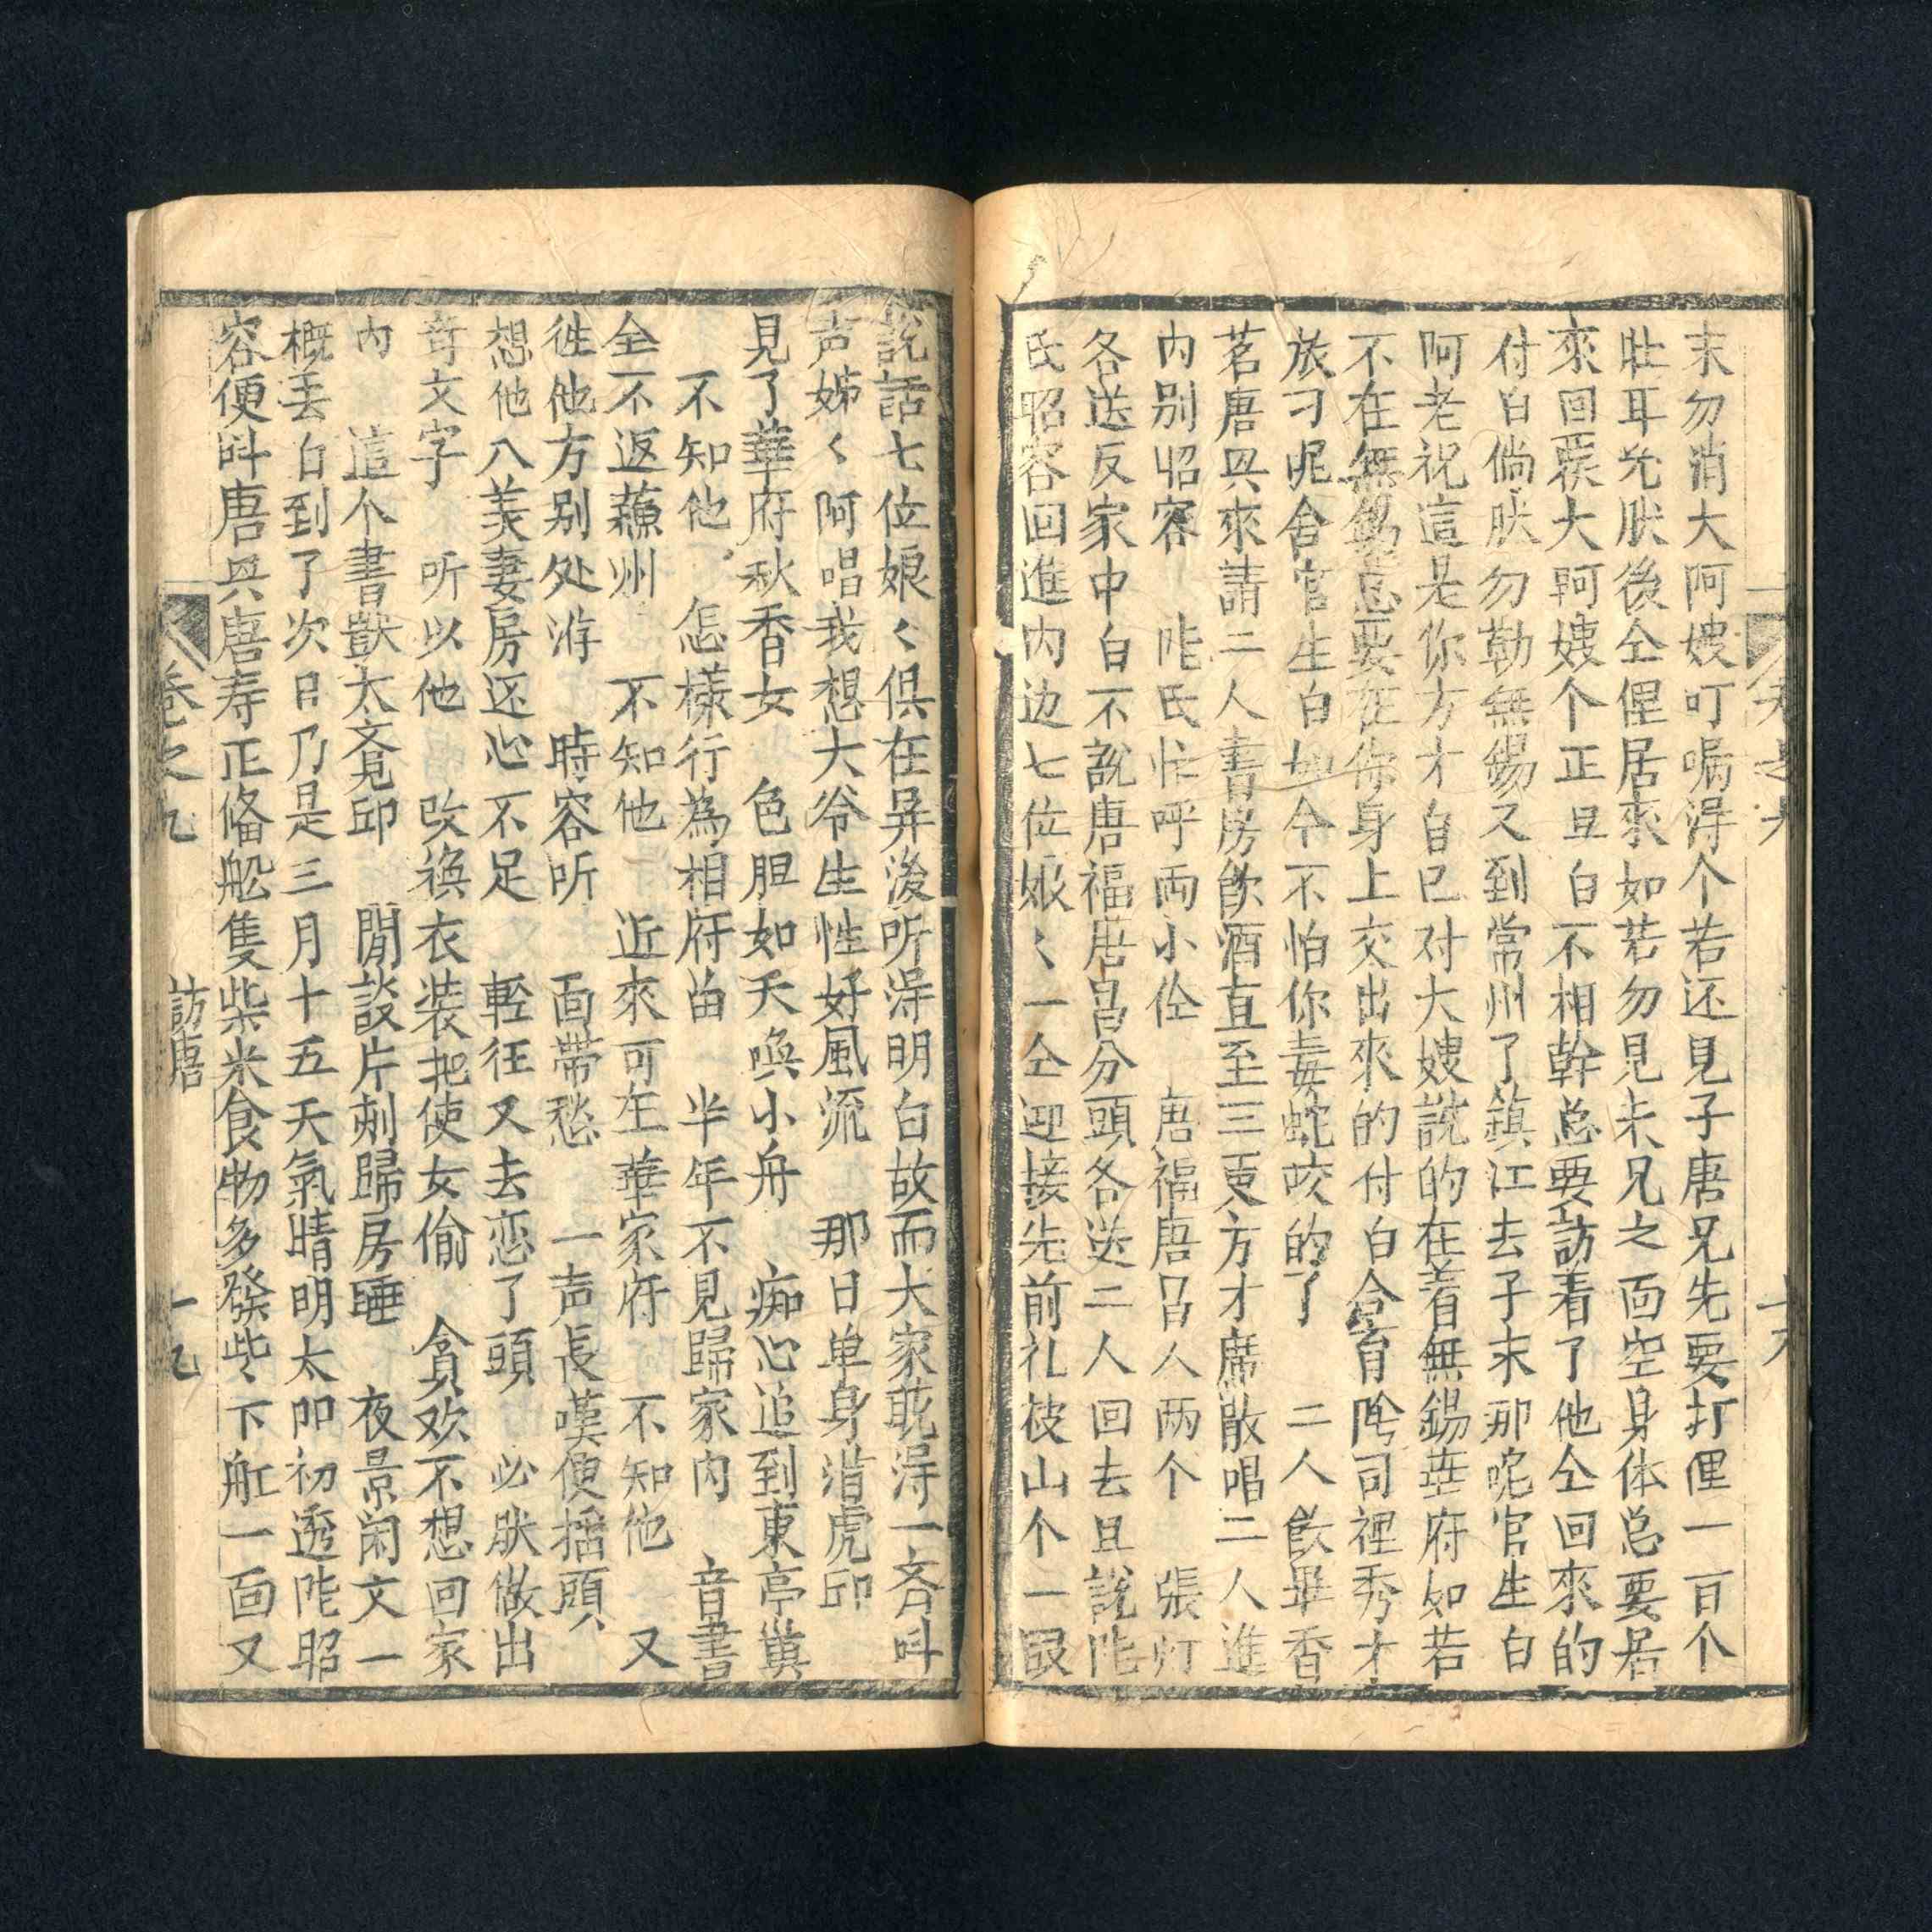 末勿消大阿嫂叮嘱淂个若还見子唐兄先要打俚一百个
壯耳光肰後仝俚居來如若勿見未兄之面空身体总要居
來回覆大阿嫂个正旦白不相幹总要訪着了他仝回來的
付白倘肰勿勒無錫又到常州了鎮江去子末那呢官生白
阿老祝這是你方才自己对大嫂説的在着無錫華府如若
不在無錫总要在你身上交出來的付白令育阴司裡秀才
旅刁呢舍官生白如今不怕你毒蛇咬的了　二人飲畢香
茗唐興來請二人書房飲酒直至三更方才席散唱二人進
内别昭容　陸氏忙呼両小伀　唐福唐昌人两个　張灯
各送反家中白不説唐福唐昌分頭各送二人回去且説陸
氏昭容回進内边七位娘く一仝迎接先前礼被山个一眼
說話七位娘く俱在屏後听淂明白故而大家耽淂一斉呌
声姊く阿唱我想大爷生性好風流　那日单身淯虎邱
見了華府秋香女　色胆如天喚小舟　痴心追到東亭鎮
不知他　怎樣行為相府畄　半年不見歸家内　音書
全不返蘇州　不知他　近來可在華家府　不知他　又
徃他方别处游　時容听　面帶愁　一声長嘆便摇頭
想他八美妻房还心不足　輕狂又去恋了頭　必肰做出
竒文字　听以他　改换衣装把使女偷　貪欢不想回家
内　這个書獃太竟邱　閒談片刻歸房睡　夜景闲文一
概丢白到了次日乃是三月十五天氣晴明太阳初透陸昭
容便呌唐興唐寿正俻船隻柴米食物多發些下舡一面又
卷之九　訪唐　十九